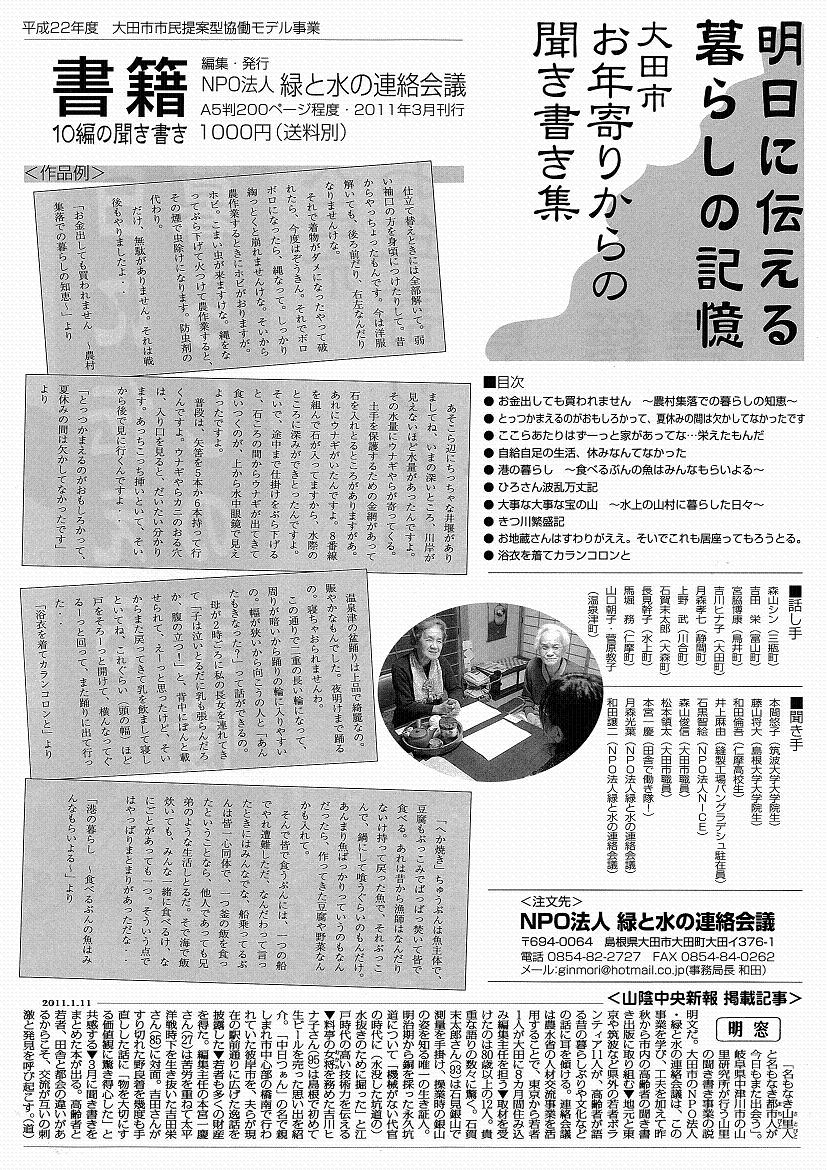 平成22年度　大田市市民提案型協働モデル事業
明日に伝える
暮らしの記憶
大田市
お年寄りからの
聞き書き集
書籍
10編の聞き書き
編集・発行
NPO法人 緑と水の連絡会議
A5判200ページ程度・2011年3月刊行
1000円（送料別）
＜作品例＞
仕立て替えときには全部解いて。弱
い袖口の方を身頃につけたりして。昔
からやっちょったもんです。今は洋服
解いても、後ろ前だり、右左なんだり
なりませんけな。
それで着物がダメになったやって破
れたら、今度はぞうきん。それでボロ
ボロになったら、縄なって。しっかり
綯っとくと崩れませんけな。そいから
農作業するときにホビがおりますが。
ホビ。こまい虫が来ますけな。縄をな
ってぶら下げて火つけて農作業すると、
その煙で虫除けになります。防虫剤の
代わり。
だけ、無駄がありません。それは戦
後もやりましたよ‥
「お金出しても買われません　～農村
集落での暮らしの知恵～」より
あそこら辺にちっちゃな井堰があり
ましてね、いまの深いところ、川岸が
見えないほど水量があったんですよ。
その水量にウナギやらが寄ってくる。
土手を保護するための金網があって
石を入れとるところがありますがあ。
あれにウナギがいたんですよ。8番線
を組んで石が入ってますから、水際の
ところに深みができとったんですよ。
そいで、途中まで仕掛けをぶら下げる
と、石ころの間からウナギが出てきて
食いつくのが、上から水中眼鏡で見え
よったですよ。
普段は、矢筈を5本か6本持って行
くんですよ。ウナギやらカニのおる穴
は、入り口を見ると、だいたい分かり
ます。あっちこっち挿いといて、そい
から後で見に行くんですよ‥
「とっつかまえるのがおもしろかって、
夏休みの間は欠かしてなかったです」
より
温泉津の盆踊りは上品で綺麗なの。
賑やかなもんでした。夜明けまで踊る
の。寝ちゃおられませんわ。
この通りで二重の長い輪になって、
周りが暗いから踊りの輪に入りやすい
の。幅が狭いから向こうの人と「あん
たもきなった？」って話ができるの。
母が2時ごろに私の長女を連れてき
て「子は泣いとるだに乳も張らんだろ
か、腹の立つ！」と、背中にぽんと載
せられて、えーっと思ったけど、そい
からまた戻ってきて乳を飲まして寝し
といてね、これぐらい（頭の幅）ほど
戸をそろーっと開けて、横んなってぐ
るーっと回って、また踊りに出て行っ
た‥
「浴衣を着てカランコロンと」より
「へか焼き」ちゅうぶんは魚主体で、
豆腐もぶっこみでばっばっ焚いて皆で
食べる。あれは昔から漁師はなんだり
ないけ持って戻った魚で、それぶっこ
んで、鍋にして喰うぐらいのもんだけ。
あんまり魚ばっかりっていうのもなん
だったら、作ってきた豆腐や野菜なん
かも入れて。
そんで皆で食うぶんには、一つの船
でやれ遭難しただ、なんだわって言っ
たときにはみんなでな、船乗ってるぶ
んは皆一心同体で、一つ釜の飯を食っ
たということなら、他人であっても兄
弟のような生活しとるだ。そで海で飯
炊いても、みんな一緒に食べるけ、な
にごとがあっても一つ。そういう点で
はやっぱりまとまりがあっただな‥
「港の暮らし　～食べるぶんの魚はみ
んなもらいよる～」より
■目次
● お金出しても買われません　～農村集落での暮らしの知恵～
● とっつかまえるのがおもしろかって、夏休みの間は欠かしてなかったです
● ここらあたりはずーっと家があってな…栄えたもんだ
● 自給自足の生活、休みなんてなかった
● 港の暮らし　～食べるぶんの魚はみんなもらいよる～
● ひろさん波乱万丈記
● 大事な大事な宝の山　～水上の山村に暮らした日々～
● きつ川繁盛記
● お地蔵さんはすわりがええ。そいでこれも居座ってもろうとる。
● 浴衣を着てカランコロンと
■話し手
森山シン（三瓶町）
吉田　栄（富山町）
宮脇博康（鳥井町）
吉川ヒナ子（大田町）
月森孝七（静間町）
上野　武（川合町）
石賀末太郎（大森町）
長見幹子（水上町）
馬堀　務（仁摩町）
山口朝子・菅原敦子
（温泉津町）
■聞き手
本間悠子（筑波大学大学院生）
藤山将大（島根大学大学院生）
和田倫吾（仁摩高校生）
井上麻由（縫製工場バングラデシュ駐在員）
石黒智絵（NPO法人NICE）
森山俊信（大田市職員）
松本領太（大田市職員）
本宮一慶（田舎で働き隊！）
月森光葉（NPO法人緑と水の連絡会議）
和田譲二（NPO法人緑と水の連絡会議）
＜注文先＞
NPO法人 緑と水の連絡会議
〒694-0064　島根県大田市大田町大田イ376-1
電話 0854-82-2727　FAX 0854-84-0262
メール:ginmori@hotmail.co.jp(事務局長 和田)
＜山陰中央新報 掲載記事＞
2011.1.11
明窓
「名もなき山里人
と名もなき都市人が
今日もまた出会う」。
岐阜県中津川市の山
里研究所が行う山里
の聞き書き事業の説
明文だ。大田市のNPO法人
・緑と水の連絡会議は、この
事業を学び、工夫を加えて昨
秋から市内の高齢者の聞き書
き出版に取り組む▼地元と東
京や筑波など県外の若者ボラ
ンティア11人が、高齢者が語
る昔の暮らしぶりや文化など
の話に耳を傾ける。連絡会議
は農水省の人材交流事業を活
用することで、東京から若者
1人が大田に8カ月間住み込
み編集主任を担う▼取材を受
けたのは80歳以上の12人。貴
重な語りの数々に驚く。石賀
末太郎さん(93)は石見銀山で
測量を手掛け、操業時の銀山
の姿を知る唯一の生き証人。
明治期から銅を採った永久坑
道について「機械がない代官
の時代に（水没した坑道の）
水抜きのために掘った」と江
戸時代の高い技術力を伝える
▼料亭の女将を務めた吉川ヒ
ナ子さん(95)は島根で初めて
生ビールを売った思い出を紹
介。「中日つぁん」の名で親
しまれ市中心部の橋南で行わ
れていた彼岸市を、夫らが現
在の駅前通りに広げた逸話を
披露した▼若者も多くの財産
を得た。編集主任の本宮一慶
さん(27)は苦労を重ねて太平
洋戦時下を生き抜いた吉田栄
さん(85)に対面。吉田さんが
すり切れた野良着を幾度も手
直しした話に「物を大切にす
る価値観に驚き得心した」と
共感する▼3月に聞き書きを
まとめた本が出る。高齢者と
若者、田舎と都会の違いがあ
るからこそ、交流が互いの刺
激と発見を呼び起こす。（道）